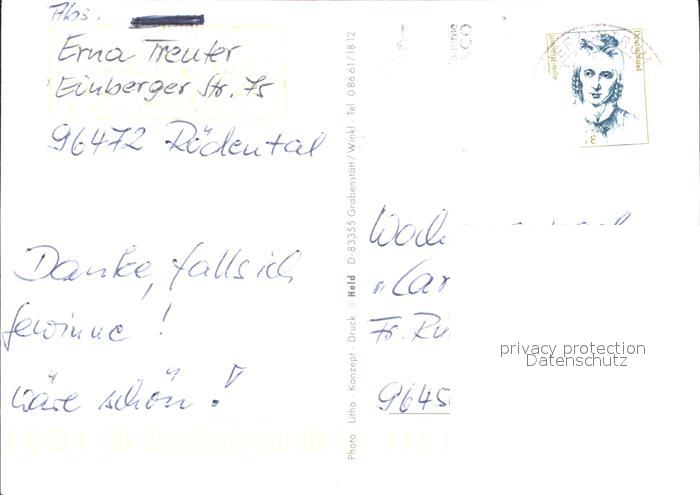 Abs.
Erna Treuter
Einberger Str. 75
96472 Rödental
Danke, falls ich
gewinne!
wäre schön!
Photo · Litho · Konzept · Druck © Held D-83355 Grabenstätt/Winkl · Tel. 08661/1812
Deutschland
Fr.
9645
privacy protection
Datenschutz